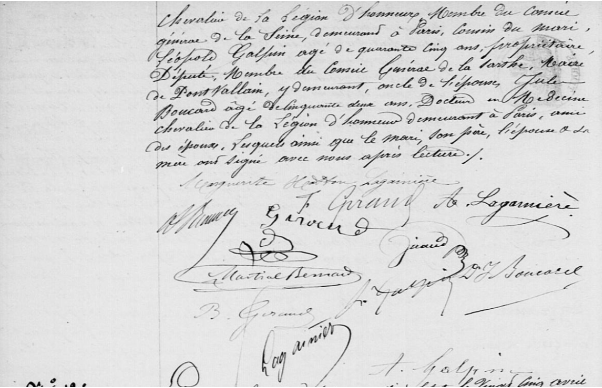 Chevalier de la Légion d'honneur, Membre du Conseil
général de la Seine, demeurant à Paris, cousin du mari,
Léopold Galpin agé de quarante cinq ans, propriétaire,
Député, Membre du Conseil Général de la Sarthe, Maire
de Pontvallain, y demeurant, oncle de l'épouse, Jules
Boucard âgé de cinquante deux ans, Docteur en Médecine
chevalier de la Légion d'honneur demeurant à Paris, ami
des époux, Lesquels ainsi que le mari, son père, l'épouse & sa
mère ont signé avec nous après lecture ./.
Marguerite Lagarnière
F Giraud A Lagarnière
Giraud
Giraud
Martial Bernard
Galpin Dr J Boucard
B. Giraud
Lagarnière
A. Galpin
vingt cinq avril